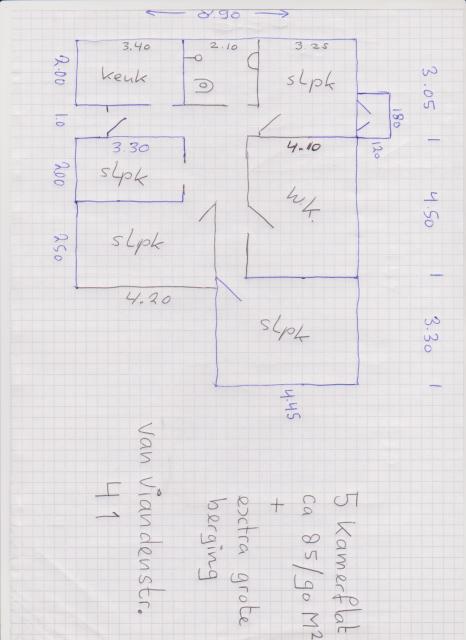 8.90
3.40
2.10
3.25
2.00
keuk
slpk
3.05
180
10
120
3.30
4.10
200
slpk
wk.
4.50
slpk
250
4.20
slpk
3.30
4.45
5 kamerflat
ca 85/90 M²
+
extra grote
berging
van Viandenstr.
41